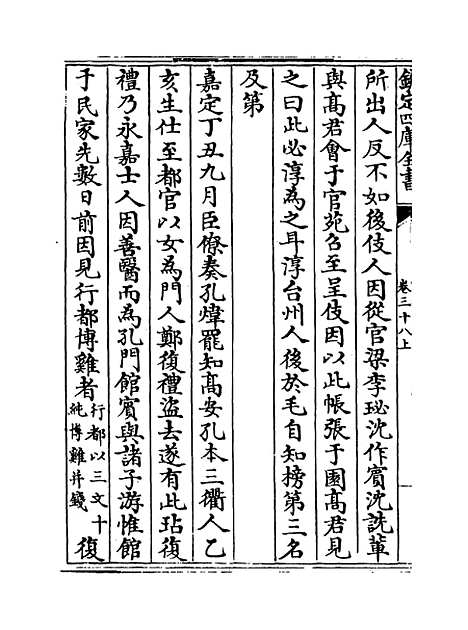 欽定四庫全書
卷三十八上
所出人反不如後伎人因從官梁李珌沈作賓沈詵輩
與高君會于官苑名至呈伎因以此帳張于園高君見
之曰此必淳為之耳淳台州人後於毛自知榜第三名
及第
嘉定丁丑九月臣僚奏孔煒罷知高安孔本三衢人乙
亥生仕至都官以女為門人鄭復禮盜去遂有此玷復
禮乃永嘉士人因善醫而為孔門館賓與諸子游惟館
于民家先數日前因見行都博雞者行都以三文十
純博雞并錢復